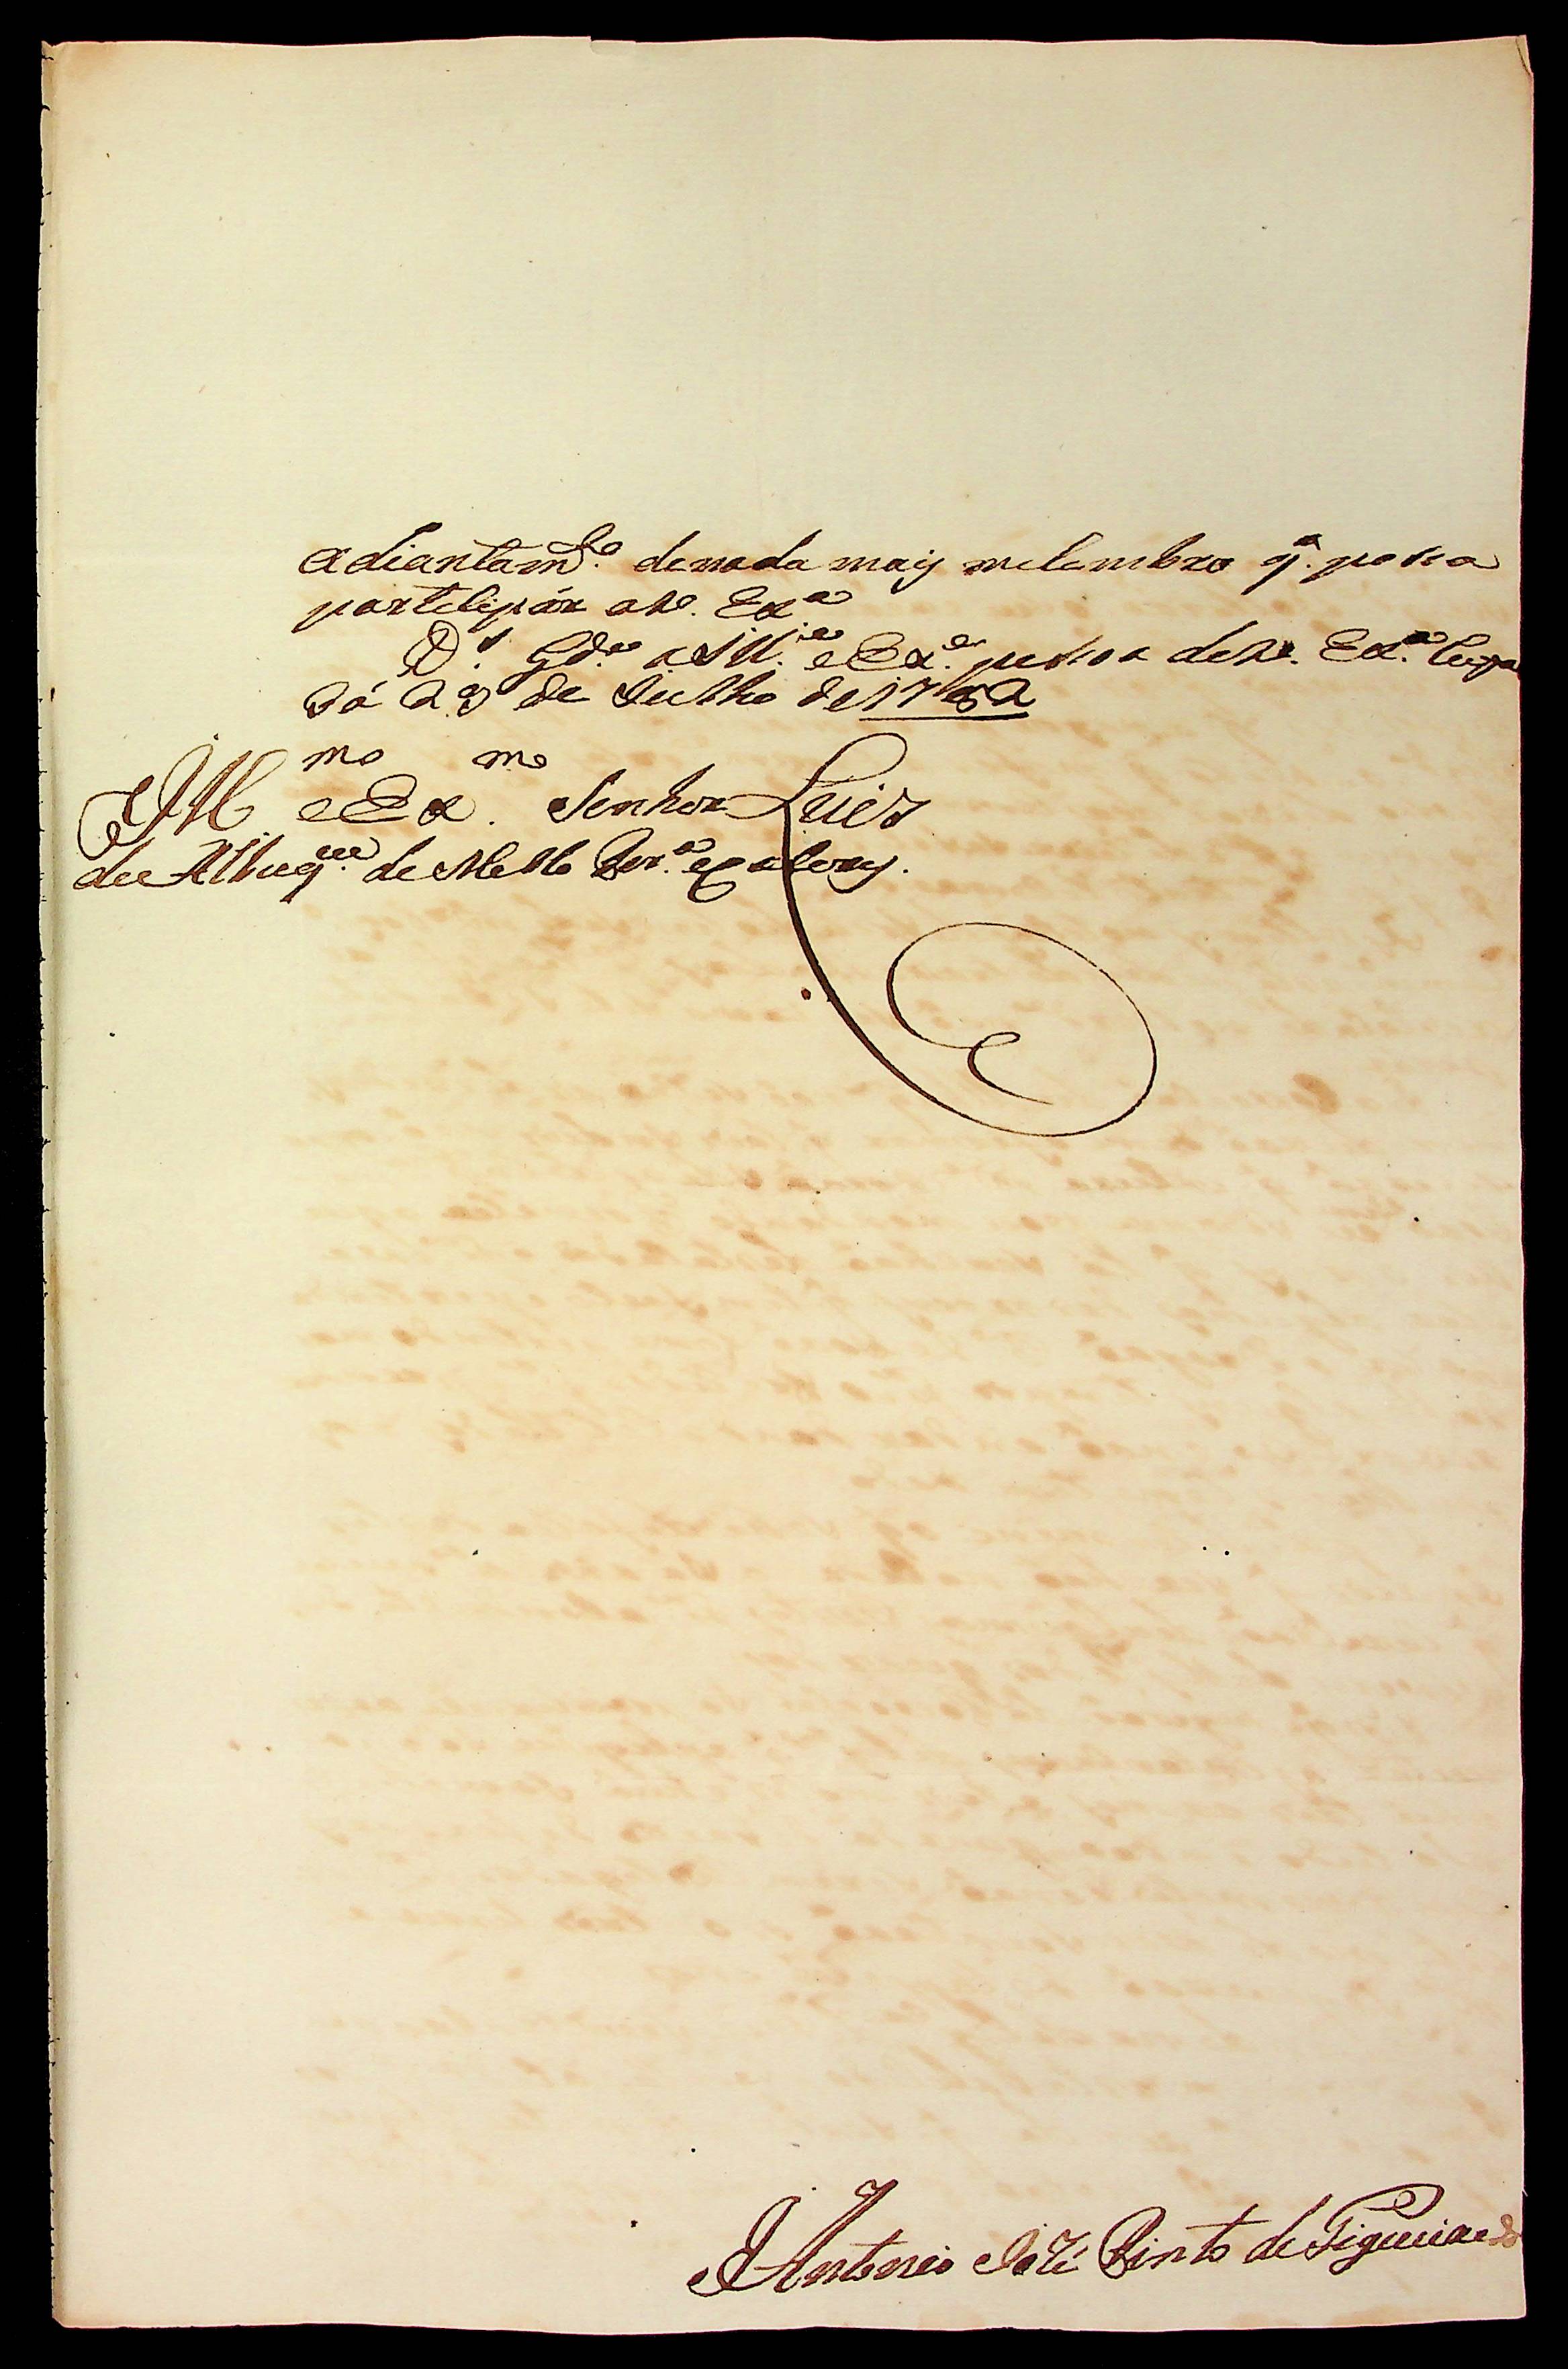 adiantam.to de nada mais me lembro q. possa
partecipár a V. Ex.a
D.s G.de a Ill.ma e Ex.ma pessoa de V. Ex.a Cuya
bá 29 de Julho de 1782
Ill mo e Ex. mo Senhor Luis
de Albuq.ue de Mello Per.a e Caceres.
Antonio José Pinto de Figueiredo